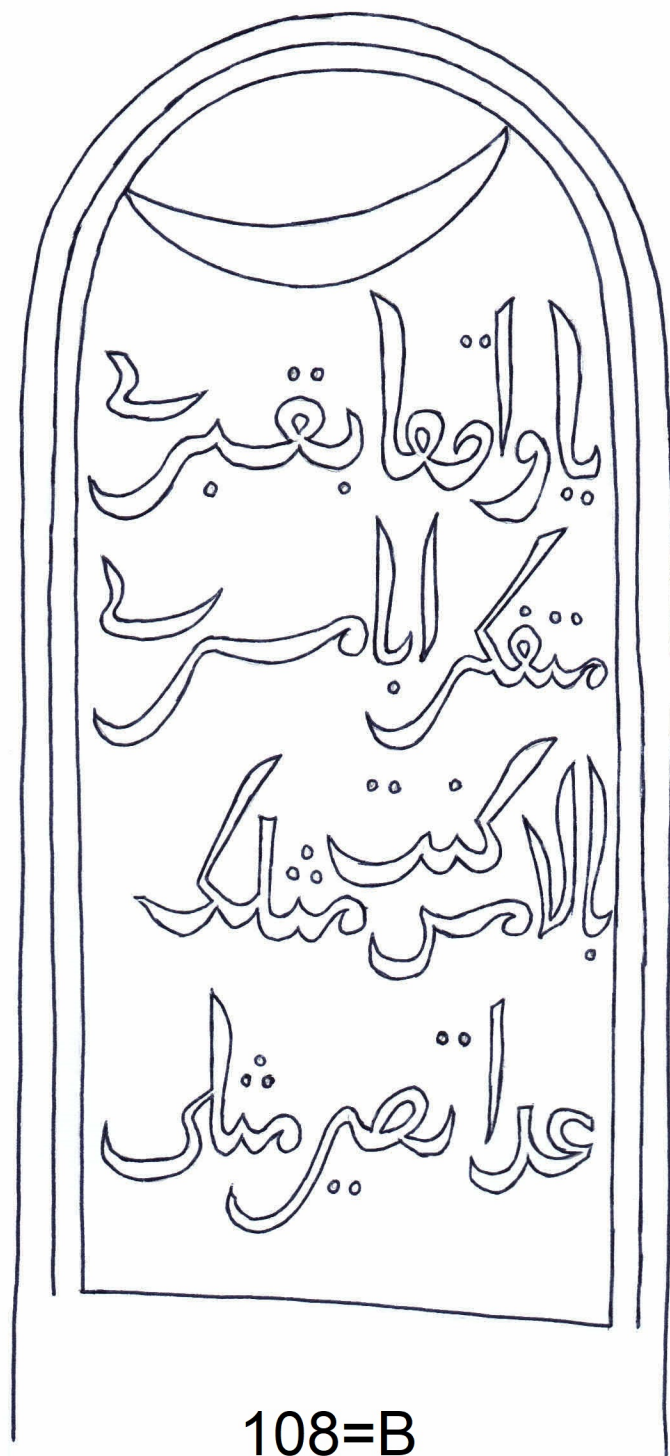 يا واقفا بقبري
متفكرا بامري
بالامس كنت مثلك
غدا تصير مثلي
108=B